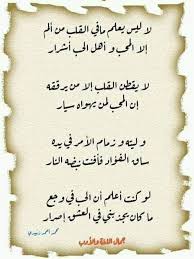 لا ليس يعلم مافي القلب من ألم
إلا المحب و أهل الحب أشرار
لا يفطن القلب إلا من يرققه
إن المحب لمن يهواه سيار
و ليته و زمام الأمر في يده
ساق الفؤاد فأفنت نبضه النار
لو كنت أعلم أن الحب في وجع
ما كان يجذبني في العشق إصرار
جمال اللغة والأدب